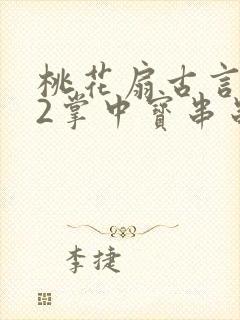 桃花扇古言
2掌中寳串
李捷